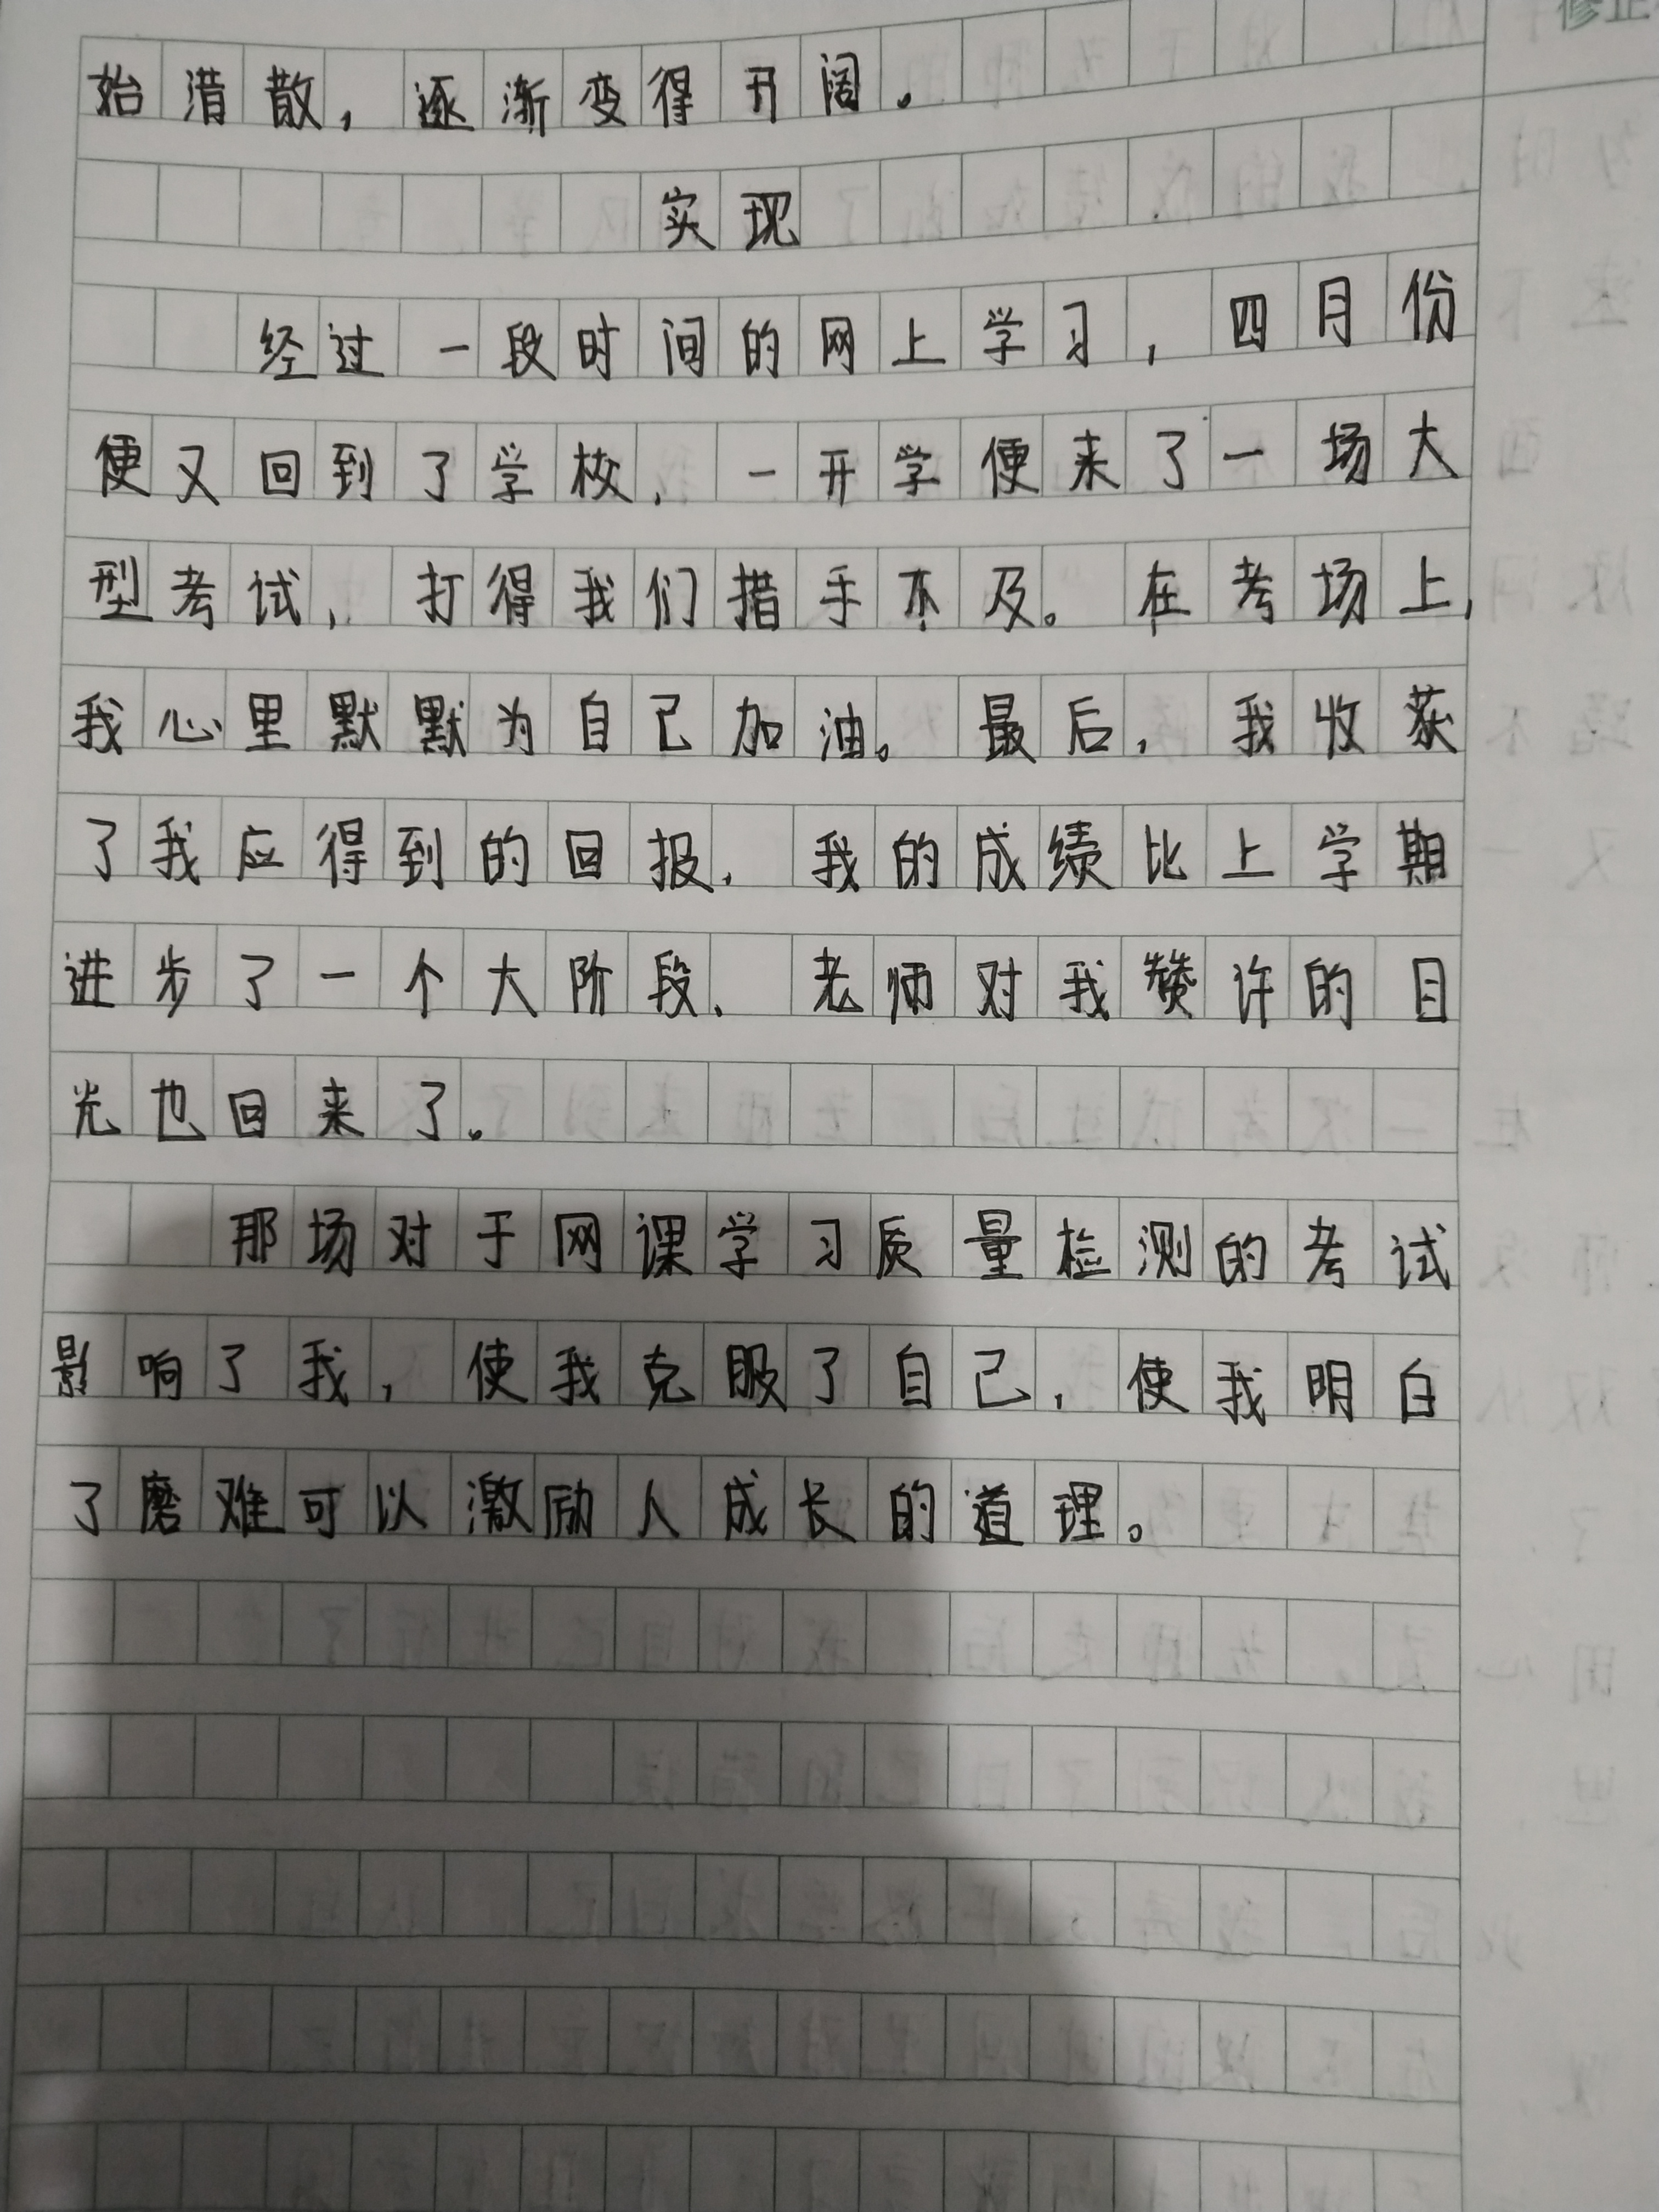 始消散，逐渐变得开阔。
实现
经过一段时间的网上学习，四月份
便又回到了学校，一开学便来了一场大
型考试，打得我们措手不及。在考场上，
我心里默默为自己加油。最后，我收获
了我应得到的回报，我的成绩比上学期
进步了一个大阶段，老师对我赞许的目
光也回来了。
那场对于网课学习质量检测的考试
影响了我，使我克服了自己，使我明白
了磨难可以激励人成长的道理。
修正